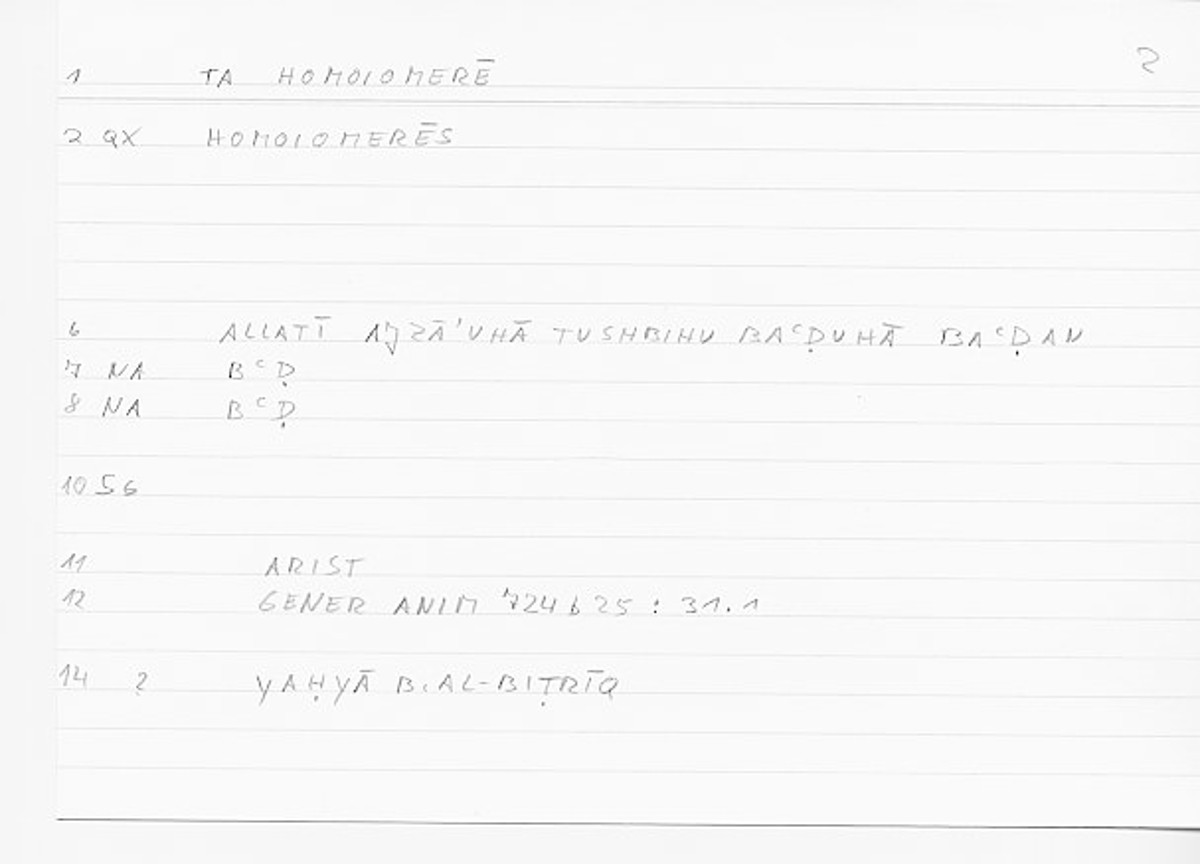 2
1 TA HOMOIOMERĒ
2 QX HOMOIOMERĒS
6 ALLATĪ AJZĀ'UHĀ TUSHBIHU BAᶜḌUHĀ BAᶜḌAN
7 NA BᶜḌ
8 NA BᶜḌ
10 56
11 ARIST
12 GENER ANIM 724 b 25 : 31.1
14 ? YAḤYĀ B. AL-BIṬRĪQ